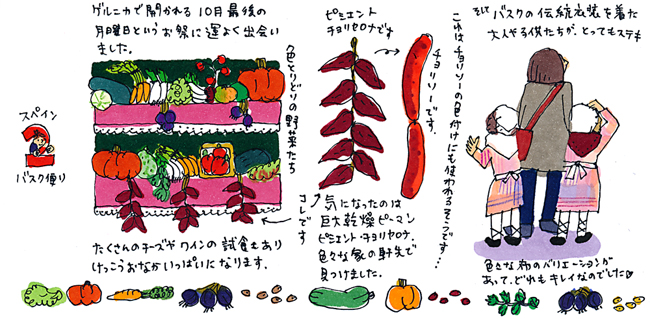 スペイン
2
バスク便り
ゲルニカで開かれる10月最後の
月曜日というお祭に運よく出会い
ました。
色とりどりの野菜たち
コレです
たくさんのチーズやワインの試食もあり
けっこうおなかいっぱいになります。
ピミエント
チョリセロです
チョリソーです。
これはチョリソーの色付けにも使われるそうです…
気になったのは
巨大乾燥ピーマン
ピミエント・チョリセロ。
色々な家の軒先で
見つけました。
そして バスクの伝統衣装を着た
大人や子供たちが、とってもステキ
色々な布のバリエーションが
あって、どれもキレイなのでした♡